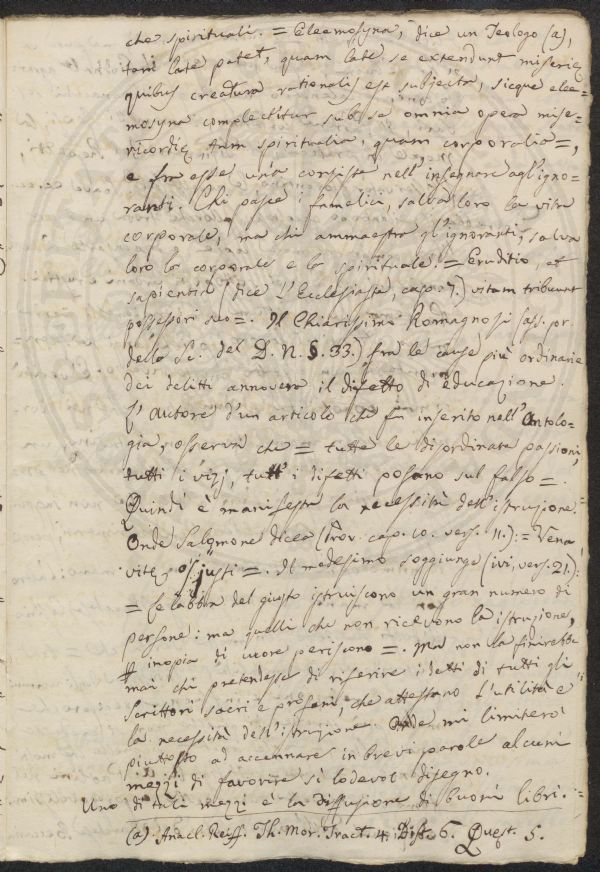 che spirituali. = Eleemosyna, dice un Teologo (a),
tam late patet, quam late se extendunt miserię
quibus creatura rationalis est subjecta, sicque elee=
mosyna complectitur sub se omnia opera mise=
ricordię, tum spiritualia, quam corporalia =,
e fra esse una consiste nell'insegnare agl'igno=
ranti. Chi pasce i famelici, salva loro la vita
corporale, ma chi ammaestra gl'ignoranti, salva
loro la corporale e la spirituale. = Eruditio, et
sapientia (dice l'Ecclesiaste, capo 7.) vitam tribuunt
possessori suo =. Il Chiarissimo Romagnosi (
della Sc. del D. N. §. 33.) fra le cause più ordinarie
dei delitti annovera il difetto di educazione.
L'autore d'un articolo che fu inserito nell'Antolo=
gia, osserva che = tutte le disordinate passioni,
tutti i vizj, tutt'i difetti posano sul falso =.
Quindi è manifesta la necessità dell'istruzione.
Onde Salomone dicea (Prov. capo 10. vers. 11.): = Vena
vitę os justi =. Il medesimo soggiunge (ivi, vers. 21.):
= Le labbra del giusto istruiscono un gran numero di
persone: ma quelli che non ricevono la istruzione,
inopia di cuore periscono =. Ma non la finirebbe
mai chi pretendesse di riferire i detti di tutti gli
Scrittori sacri e profani, che attestano l'utilità e
la necessità dell'istruzione. Onde mi limiterò
piuttosto ad accennare in brevi parole alcuni
mezzi di favorire sì lodevol disegno.
Uno di tali mezzi è la diffusione di buoni libri.
(a). Anacl. Reiff. Th. Mor. Tract. 4. Dist. 6. Quęst. 5.